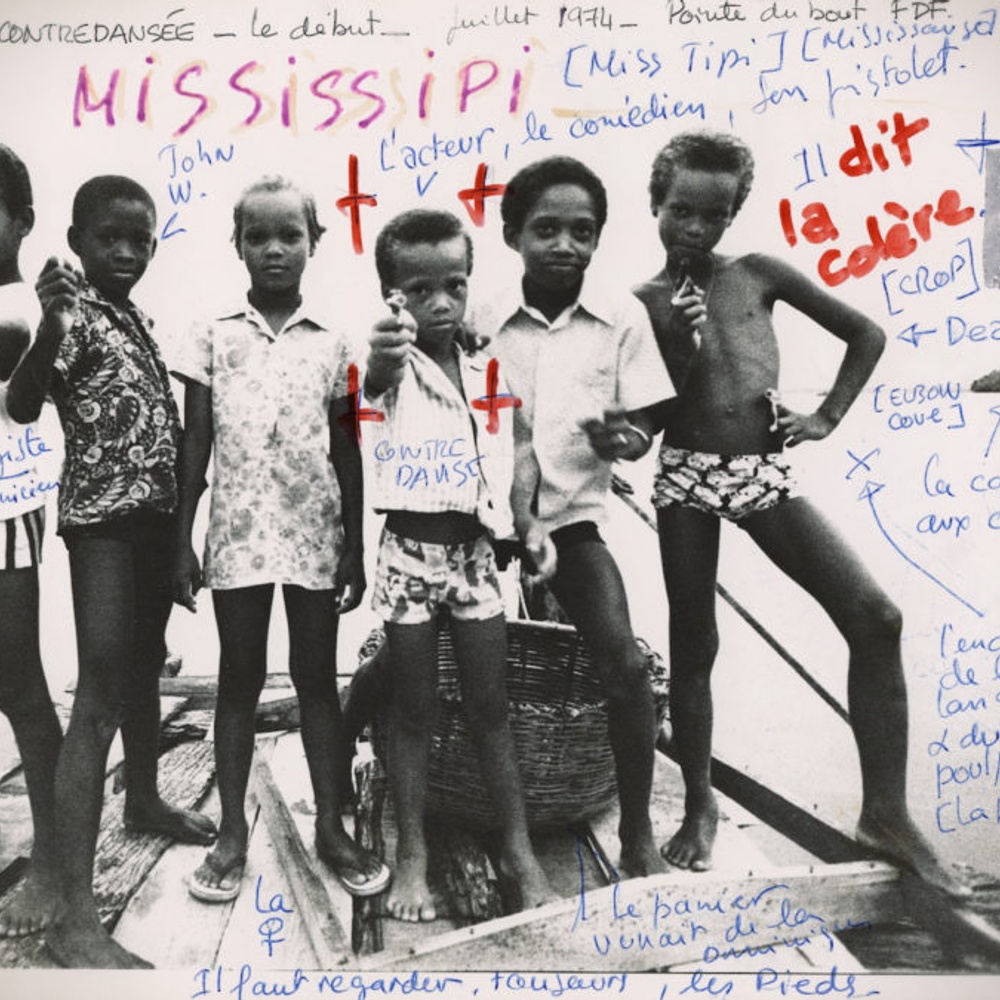 CONTREDANSÉE - le début - Juillet 1974 - Pointe du bout FDF.
MiSSiSSiPi [Miss Tipi]
L'acteur, le comédien, son pistolet.
John
W.
Il dit
la
colère.
[CROP]
← Dea
[ELBOW
cove]
la co
aux c
CONTRE
DANSE
giste
l'enc
de l
lan
& du
poul
[la
La
♀
le panier
venait de la
Dominique
Il faut regarder, toujours, les Pieds -